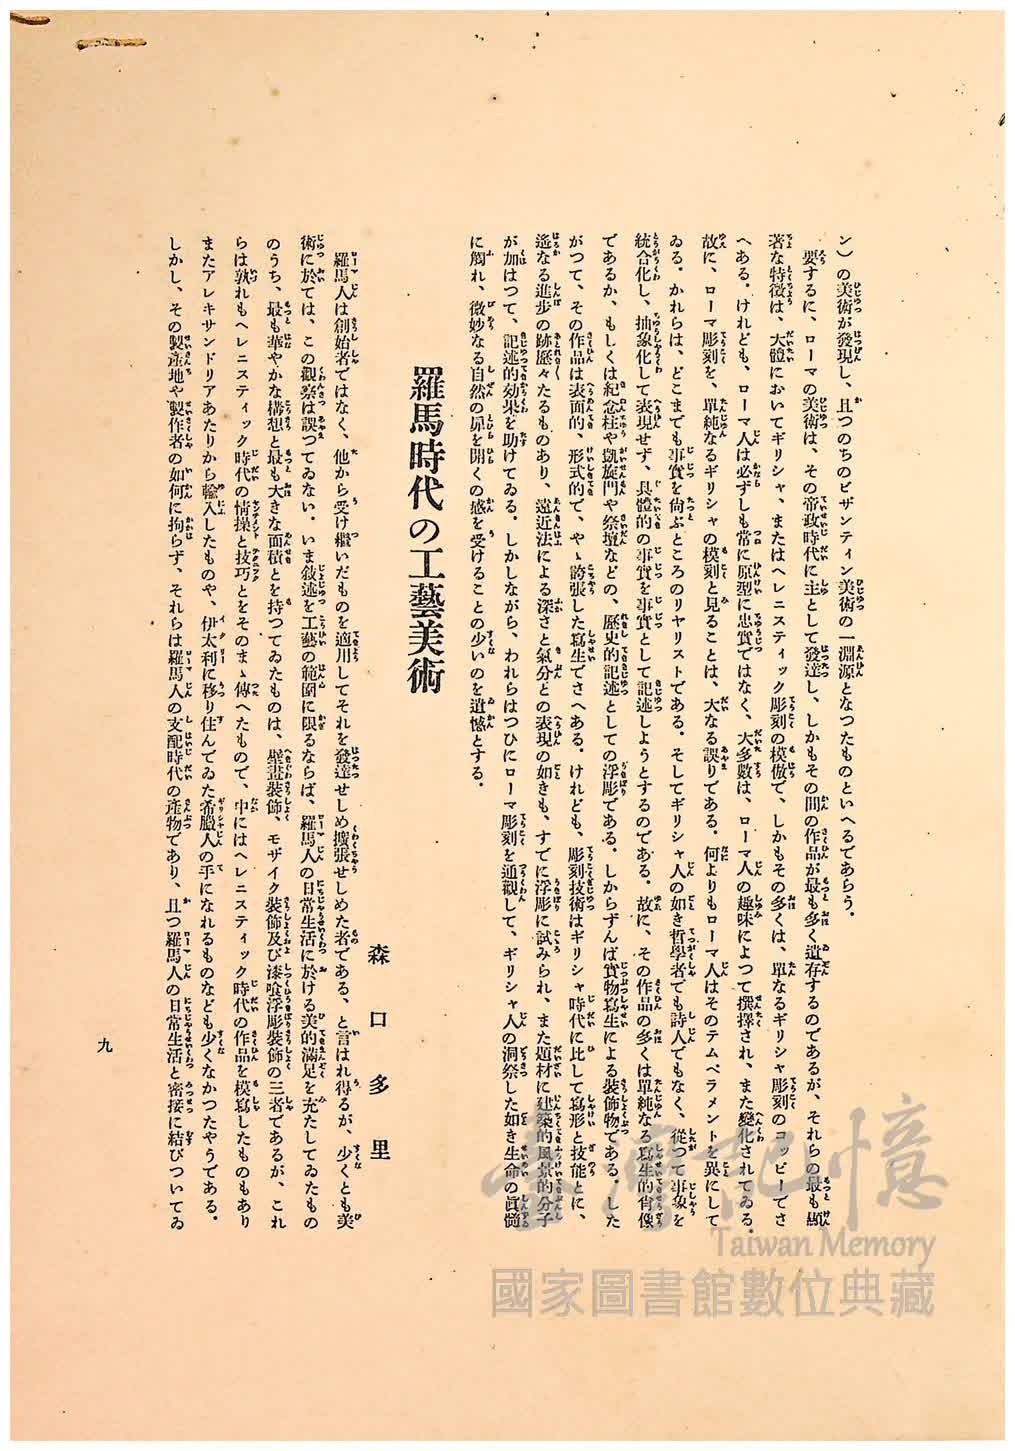 ン）の美術が發現し、且つのちのビザンティン美術の一淵源となつたものといへるであらう。
要するに、ローマの美術は、その帝政時代に主として發達し、しかもその間の作品が最も多く遺存するのであるが、それらの最も顯
著な特徴は、大體においてギリシャ、またはヘレニスティック彫刻の模倣で、しかもその多くは、單なるギリシャ彫刻のコッピーでさ
へある。けれども、ローマ人は必ずしも常に原型に忠實ではなく、大多數は、ローマ人の趣味によつて撰擇され、また變化されてゐる。
故に、ローマ彫刻を、單純なるギリシャの模刻と見ることは、大なる誤りである。何よりもローマ人はそのテムペラメントを異にして
ゐる。かれらは、どこまでも事實を尙ぶところのリヤリストである。そしてギリシャ人の如き哲學者でも詩人でもなく、從つて事象を
統合化し、抽象化して表現せず、具體的の事實を事實として記述しようとするのである。故に、その作品の多くは單純なる寫生的肖像
であるか、もしくは紀念柱や凱旋門や祭壇などの、歷史的記述としての浮彫である。しからずんば實物寫生による裝飾物である。した
がつて、その作品は表面的、形式的で、やゝ誇張した寫生でさへある。けれども、彫刻技術はギリシャ時代に比して寫形と技能とに、
遙なる進步の跡歷々たるものあり、遠近法による深さと氣分との表現の如きも、すでに浮彫に試みられ、また題材に建築的風景的分子
が加はつて、記述的効果を助けてゐる。しかしながら、われらはつひにローマ彫刻を通觀して、ギリシャ人の洞察した如き生命の眞髓
に觸れ、微妙なる自然の扉を開くの感を受けることの少いのを遺憾とする。
羅馬時代の工藝美術
森口多里
羅馬人は創始者ではなく、他から受け繼いだものを適用してそれを發達せしめ擴張せしめた者である、と言はれ得るが、少くとも美
術に於ては、この觀察は誤つてゐない。いま敍述を工藝の範圍に限るならば、羅馬人の日常生活に於ける美的滿足を充たしてゐたもの
のうち、最も華やかな構想と最も大きな面積とを持つてゐたものは、壁畫裝飾、モザイク裝飾及び漆喰浮彫裝飾の三者であるが、これ
らは孰れもヘレニスティック時代の情操と技巧とをそのまゝ傳へたもので、中にはヘレニスティック時代の作品を模寫したものもあり
またアレキサンドリアあたりから輸入したものや、伊太利に移り住んでゐた希臘人の手になれるものなども少くなかつたやうである。
しかし、その製產地や製作者の如何に拘らず、それらは羅馬人の支配時代の產物であり、且つ羅馬人の日常生活と密接に結びついてゐ
九
臺灣記憶
Taiwan Memory
國家圖書館數位典藏